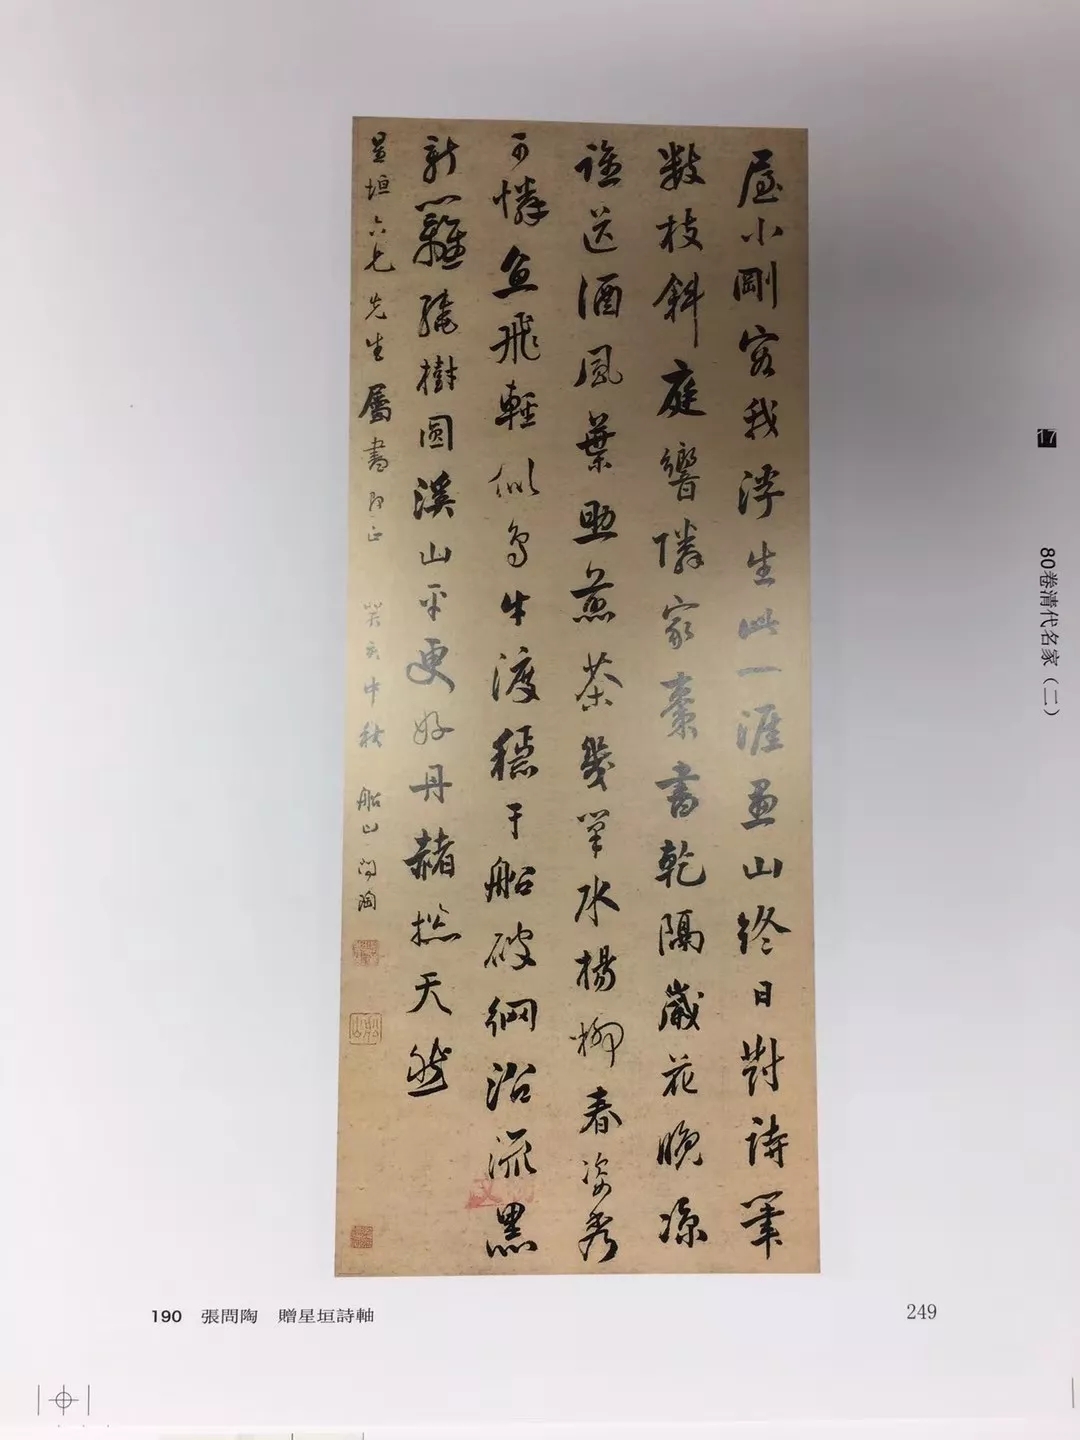 屋小剛容我浮生此一涯畫山終日對詩筆
數枝斜庭響隣家棗書乾隔歲花晚涼
誰送酒風葉助煎茶幾筆水楊柳春姿秀
可憐魚飛輕似鳥牛渡穩于船破網沿流黑
新籬繞樹圓溪山平更好丹赭摠天然
星垣六先生屬書即正 癸亥中秋 船山問陶
17
80卷清代名家（二）
190 張問陶 贈星垣詩軸
249